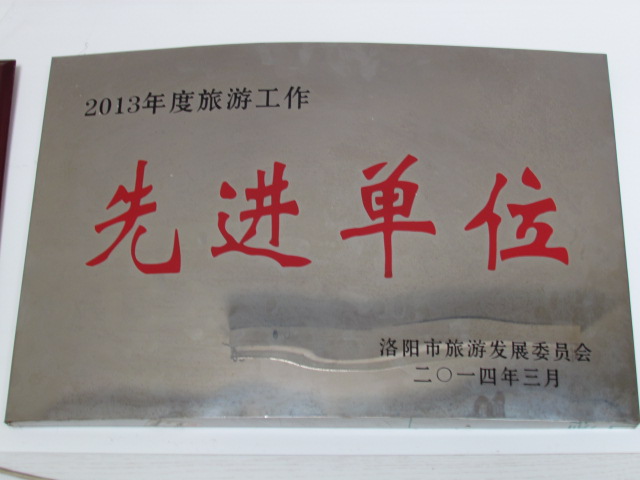 2013年度旅游工作
先进单位
洛阳市旅游发展委员会
二〇一四年三月